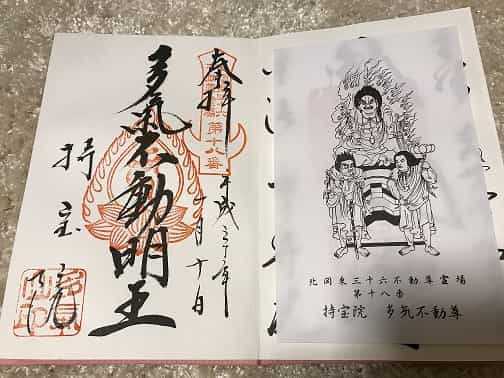 奉拝
第十八番
平成三十年
月十日
多氣不動明王
持宝院
北関東三十六不動尊霊場
第十八番
持宝院 多気不動尊